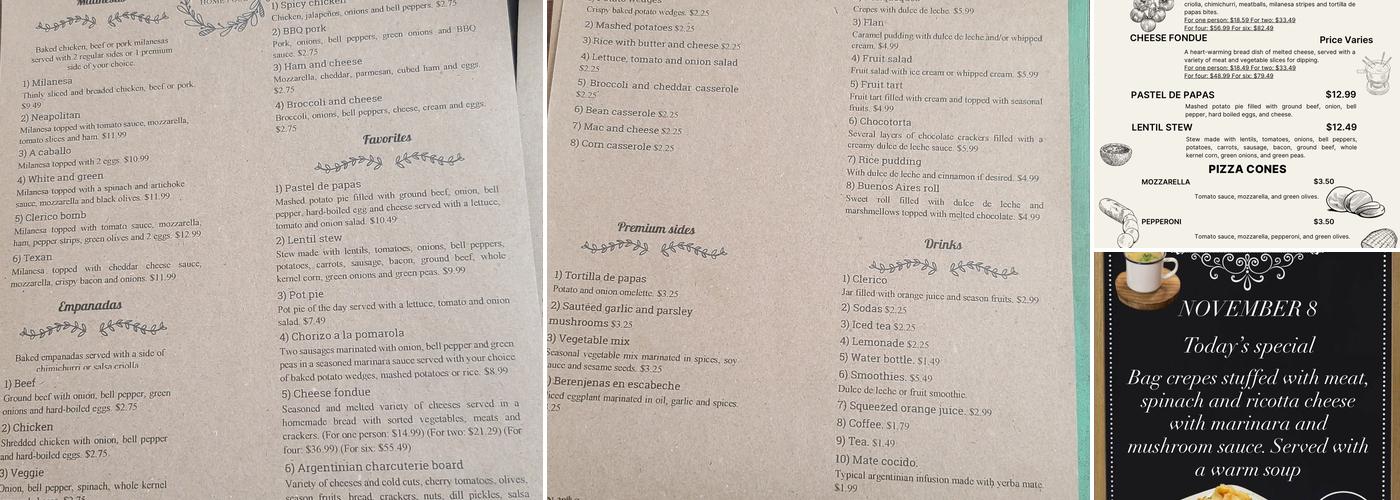 Milanesas
Baked chicken, beef or pork milanesas
served with 2 regular sides or 1 premium
side of your choice.
1) Milanesa
Thinly sliced and breaded chicken, beef or pork.
$9.49
2) Neapolitan
Milanesa topped with tomato sauce, mozzarella,
tomato slices and ham. $11.99
3) A caballo
Milanesa topped with 2 eggs. $10.99
4) White and green
Milanesa topped with a spinach and artichoke
sauce, mozzarella and black olives. $11.99
5) Clerico bomb
Milanesa topped with tomato sauce, mozzarella,
ham, pepper strips, green olives and 2 eggs. $12.99
6) Texan
Milanesa topped with cheddar cheese sauce,
mozzarella, crispy bacon and onions. $11.99
Empanadas
Baked empanadas served with a side of
chimichurri or salsa criolla
1) Beef
Ground beef with onion, bell pepper, green
onions and hard-boiled eggs. $2.75
2) Chicken
Shredded chicken with onion, bell pepper
and hard-boiled eggs. $2.75
3) Veggie
Onion, bell pepper, spinach, whole kernel
$2.75
1) Spicy chicken
Chicken, jalapeños, onions and bell peppers. $2.75
2) BBQ pork
Pork, onions, bell peppers, green onions and BBQ
sauce. $2.75
3) Ham and cheese
Mozzarella, cheddar, parmesan, cubed ham and eggs.
$2.75
4) Broccoli and cheese
Broccoli, onions, bell peppers, cheese, cream and eggs.
$2.75
Favorites
1) Pastel de papas
Mashed potato pie filled with ground beef, onion, bell
pepper, hard-boiled egg and cheese served with a lettuce,
tomato and onion salad. $10.49
2) Lentil stew
Stew made with lentils, tomatoes, onions, bell peppers,
potatoes, carrots, sausage, bacon, ground beef, whole
kernel corn, green onions and green peas. $9.99
3) Pot pie
Pot pie of the day served with a lettuce, tomato and onion
salad. $7.49
4) Chorizo a la pomarola
Two sausages marinated with onion, bell pepper and green
peas in a seasoned marinara sauce served with your choice
of baked potato wedges, mashed potatoes or rice. $8.99
5) Cheese fondue
Seasoned and melted variety of cheeses served in a
homemade bread with sorted vegetables, meats and
crackers. (For one person: $14.99) (For two: $21.29) (For
four: $36.99) (For six: $55.49)
6) Argentinian charcuterie board
Variety of cheeses and cold cuts, cherry tomatoes, olives,
season fruits, bread, crackers, nuts, dill pickles, salsa
Crispy baked potato wedges. $2.25
2) Mashed potatoes $2.25
3) Rice with butter and cheese $2.25
4) Lettuce, tomato and onion salad
$2.25
5) Broccoli and cheddar casserole
$2.25
6) Bean casserole $2.25
7) Mac and cheese $2.25
8) Corn casserole $2.25
Premium sides
1) Tortilla de papas
Potato and onion omelette. $3.25
2) Sautéed garlic and parsley
mushrooms $3.25
3) Vegetable mix
Seasonal vegetable mix marinated in spices, soy
sauce and sesame seeds. $3.25
) Berenjenas en escabeche
iced eggplant marinated in oil, garlic and spices.
.25
Crepes with dulce de leche. $5.99
3) Flan
Caramel pudding with dulce de leche and/or whipped
cream. $4.99
4) Fruit salad
Fruit salad with ice cream or whipped cream. $5.99
5) Fruit tart
Fruit tart filled with cream and topped with seasonal
fruits. $4.99
6) Chocotorta
Several layers of chocolate crackers filled with a
creamy dulce de leche sauce. $5.99
7) Rice pudding
With dulce de leche and cinnamon if desired. $4.99
8) Buenos Aires roll
Sweet roll filled with dulce de leche and
marshmellows topped with melted chocolate. $4.99
Drinks
1) Clerico
Jar filled with orange juice and season fruits. $2.99
2) Sodas $2.25
3) Iced tea $2.25
4) Lemonade $2.25
5) Water bottle. $1.49
6) Smoothies. $5.49
Dulce de leche or fruit smoothie.
7) Squeezed orange juice. $2.99
8) Coffee. $1.79
9) Tea. $1.49
10) Mate cocido.
Typical argentinian infusion made with yerba mate.
$1.99
criolla, chimichurri, meatballs, milanesa strips and tortilla de
papas bites.
For one person: $18.59 For two: $33.49
For four: $56.99 For six: $82.49
CHEESE FONDUE Price Varies
A heart-warming bread dish of melted cheese, served with a
variety of meat and vegetable slices for dipping.
For one person: $18.49 For two: $33.49
For four: $48.99 For six: $79.49
PASTEL DE PAPAS $12.99
Mashed potato pie filled with ground beef, onion, bell
pepper, hard boiled eggs, and cheese.
LENTIL STEW $12.49
Stew made with lentils, tomatoes, onions, bell peppers,
potatoes, carrots, sausage, bacon, ground beef, whole
kernel corn, green onions, and green peas.
PIZZA CONES
MOZZARELLA $3.50
Tomato sauce, mozzarella, and green olives.
PEPPERONI $3.50
Tomato sauce, mozzarella, pepperoni, and green olives.
NOVEMBER 8
Today's special
Bag crepes stuffed with meat,
spinach and ricotta cheese
with marinara and
mushroom sauce. Served with
a warm soup